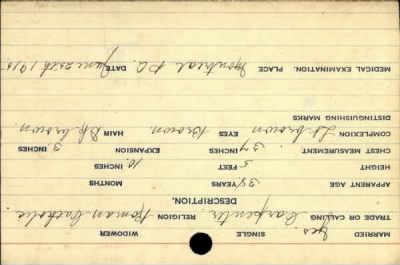 MARRIED Yes. SINGLE WIDOWER
TRADE OR CALLING Carpenter. RELIGION Roman Catholic
DESCRIPTION.
APPARENT AGE 38 YEARS MONTHS
HEIGHT 5 FEET 10 INCHES
CHEST MEASUREMENT 37 INCHES EXPANSION 3 INCHES
COMPLEXION Lt brown EYES Brown. HAIR Dk brown.
DISTINGUISHING MARKS
MEDICAL EXAMINATION. PLACE Montreal P.Q. DATE June 25th 1915.